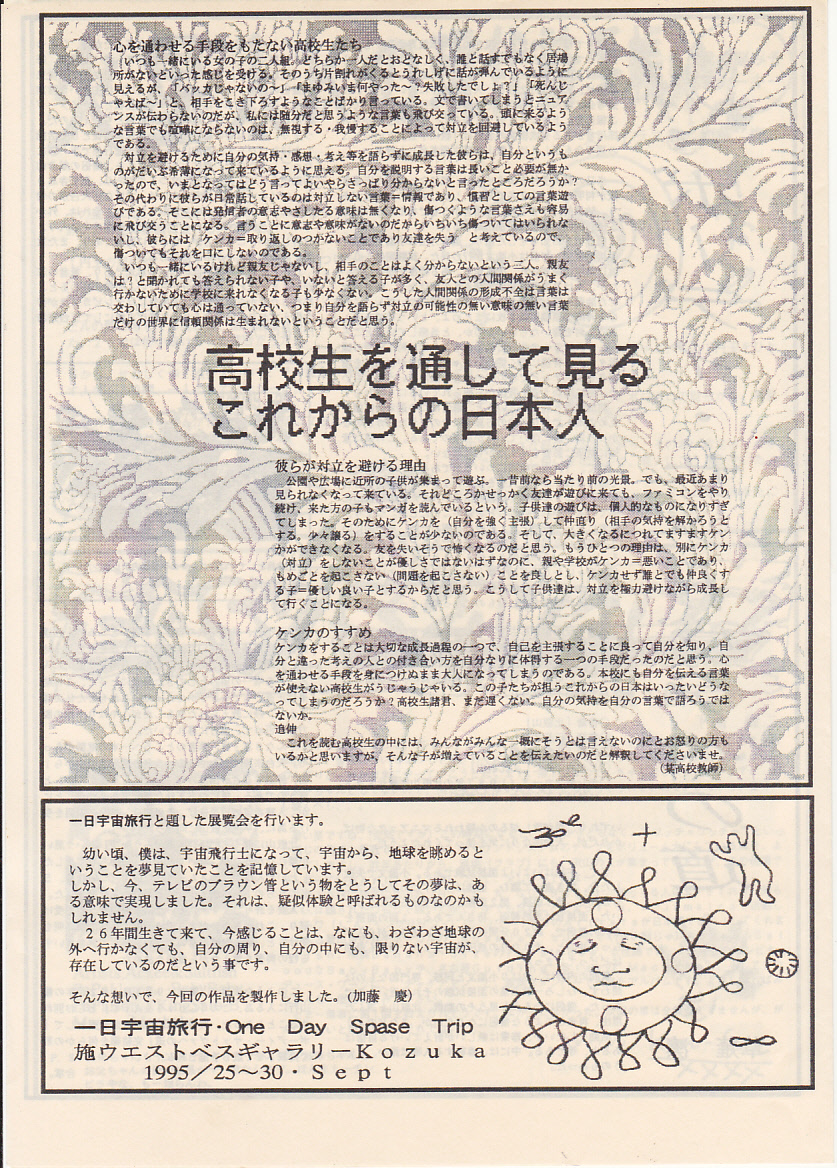 心を通わせる手段をもたない高校生たち
いつも一緒にいる女の子の二人組。どちらか一人だとおとなしく、誰と話すでもなく居場
所がないといった感じを受ける。そのうち片割れがくるとうれしげに話が弾んでいるように
見えるが、「バッカじゃないの〜」「まゆみいま何やった〜？失敗したでしょ？」「死んじ
ゃえば〜」と、相手をこき下ろすようなことばかり言っている。文で書いてしまうとニュア
ンスが伝わらないのだが、私には随分だと思うような言葉も飛び交っている。頭に来るよう
な言葉でも喧嘩にならないのは、無視する・我慢することによって対立を回避しているよう
である。
対立を避けるために自分の気持・感想・考え等を語らずに成長した彼らは、自分というも
のがだいぶ希薄になって来ているように思える。自分を説明する言葉は長いこと必要が無か
ったので、いまとなってはどう言ってよいやらさっぱり分からないと言ったところだろうか？
その代わりに彼らが日常話しているのは対立しない言葉＝情報であり、慣習としての言葉遊
びである。そこには発信者の意志やさしたる意味は無くなり、傷つくような言葉さえも容易
に飛び交うことになる。言うことに意志や意味がないのだからいちいち傷ついてはいられな
いし、彼らには　ケンカ＝取り返しのつかないことであり友達を失う　と考えているので、
傷ついてもそれを口にしないのである。
いつも一緒にいるけれど親友じゃないし、相手のことはよく分からないという二人。親友
は？と聞かれても答えられない子や、いないと答える子が多く、友人との人間関係がうまく
行かないために学校に来れなくなる子も少なくない。こうした人間関係の形成不全は言葉は
交わしていても心は通っていない、つまり自分を語らず対立の可能性の無い意味の無い言葉
だけの世界に信頼関係は生まれないということだと思う。
高校生を通して見る
これからの日本人
彼らが対立を避ける理由
公園や広場に近所の子供が集まって遊ぶ。一昔前なら当たり前の光景。でも、最近あまり
見られなくなって来ている。それどころかせっかく友達が遊びに来ても、ファミコンをやり
続け、来た方の子もマンガを読んでいるという。子供達の遊びは、個人的なものになりすぎ
てしまった。そのためにケンカを（自分を強く主張）して仲直り（相手の気持を解かろうと
する。少々譲る）をすることが少ないのである。そして、大きくなるにつれてますますケン
カができなくなる。友を失いそうで怖くなるのだと思う。もうひとつの理由は、別にケンカ
（対立）をしないことが優しさではないはずなのに、親や学校がケンカ＝悪いことであり、
もめごとを起こさない（問題を起こさない）ことを良しとし、ケンカせず誰とでも仲良くす
る子＝優しい良い子とするからだと思う。こうして子供達は、対立を極力避けながら成長し
て行くことになる。
ケンカのすすめ
ケンカをすることは大切な成長過程の一つで、自己を主張することに良って自分を知り、自
分と違った考えの人との付き合い方を自分なりに体得する一つの手段だったのだと思う。心
を通わせる手段を身につけぬまま大人になってしまうのである。本校にも自分を伝える言葉
が使えない高校生がうじゃうじゃいる。この子たちが担うこれからの日本はいったいどうな
ってしまうのだろうか？高校生諸君、まだ遅くない。自分の気持を自分の言葉で語ろうでは
ないか。
追伸
これを読む高校生の中には、みんながみんな一概にそうとは言えないのにとお怒りの方も
いるかと思いますが、そんな子が増えていることを伝えたいのだと解釈してくださいませ。
（某高校教師）
一日宇宙旅行と題した展覧会を行います。
幼い頃、僕は、宇宙飛行士になって、宇宙から、地球を眺めると
いうことを夢見ていたことを記憶しています。
しかし、今、テレビのブラウン管という物をとうしてその夢は、あ
る意味で実現しました。それは、疑似体験と呼ばれるものなのかも
しれません。
２６年間生きて来て、今感じることは、なにも、わざわざ地球の
外へ行かなくても、自分の周り、自分の中にも、限りない宇宙が、
存在しているのだという事です。
そんな想いで、今回の作品を製作しました。(加藤　慶)
一日宇宙旅行・One Day Spase Trip
施ウエストベスギャラリーKozuka
1995／25〜30・Sept